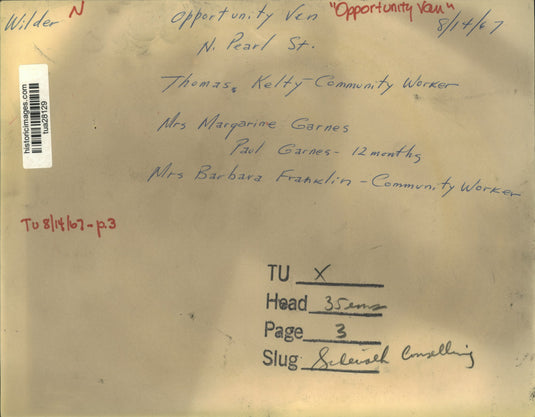 Wilder N Opportunity Van "Opportunity Van" 8/14/67
N. Pearl St.
Thomas Kelty - Community Worker
Mrs Margarine Garnes
Paul Garnes - 12 months
Mrs Barbara Franklin - Community Worker
historicimages.com
tua28129
TU 8/14/67 - p.3
TU X
Head 35ems
Page 3
Slug